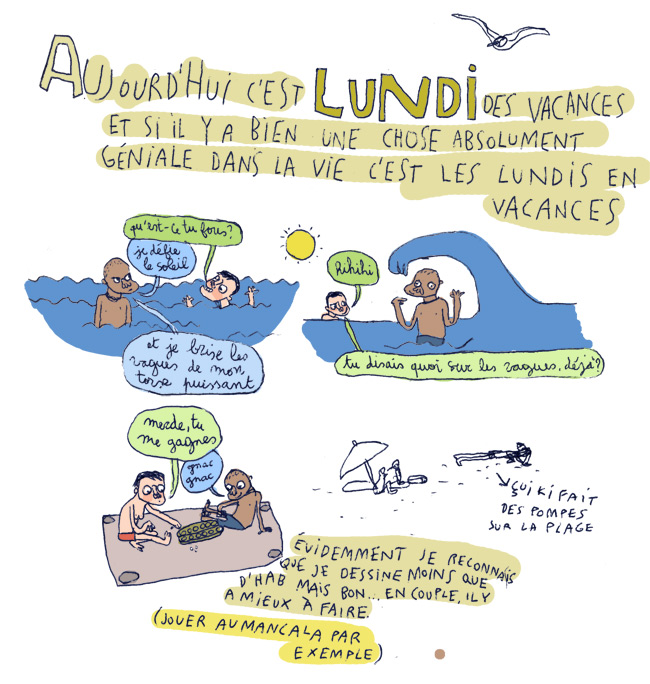 AUJOURD'HUI C'EST LUNDI DES VACANCES
ET SI IL Y A BIEN UNE CHOSE ABSOLUMENT
GÉNIALE DANS LA VIE C'EST LES LUNDIS EN
VACANCES
qu'est-ce tu fous?
je défie
le soleil
et je brise les
vagues de mon
torse puissant
hihihi
tu disais quoi sur les vagues, déjà?
merde, tu
me gagnes
gnac
gnac
ÇUI KI FAIT
DES POMPES
SUR LA PLAGE
ÉVIDEMMENT JE RECONNAIS
QUE JE DESSINE MOINS QUE
D'HAB MAIS BON... EN COUPLE, IL Y
A MIEUX À FAIRE.
(JOUER AU MANCALA PAR
EXEMPLE)